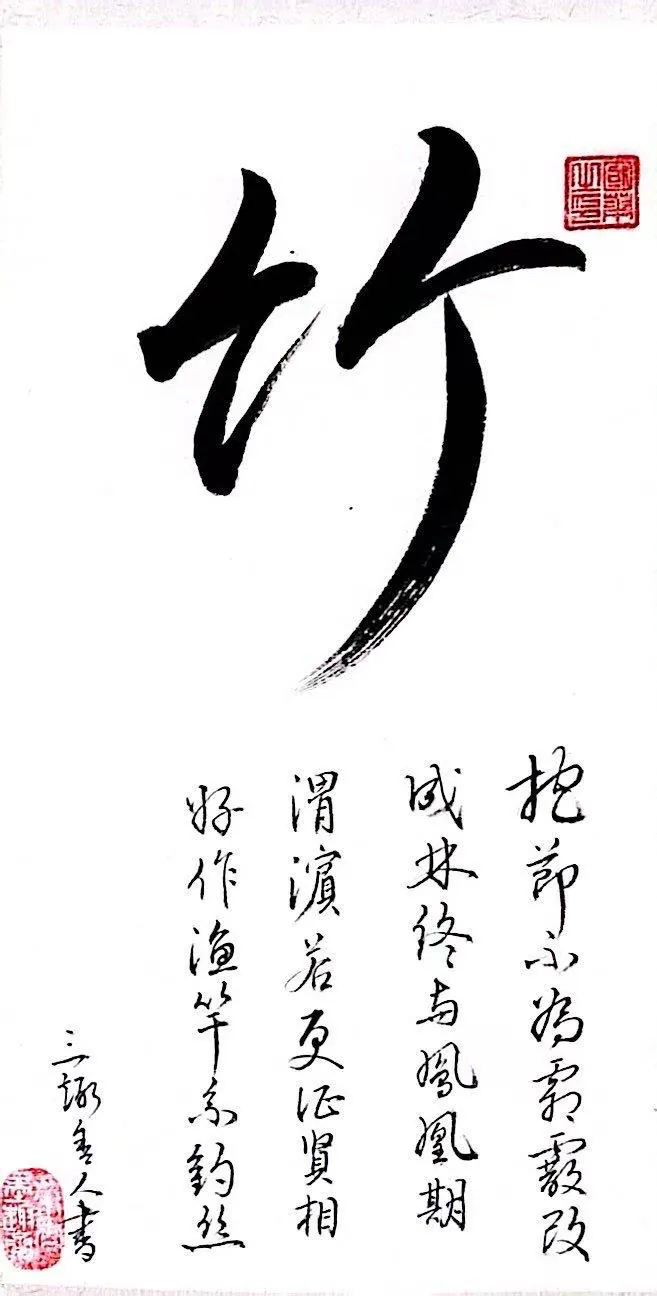 竹
抱節不為霜霰改
成林終与鳳凰期
渭濱若更征賢相
好作漁竿系釣丝
三趣舍人書